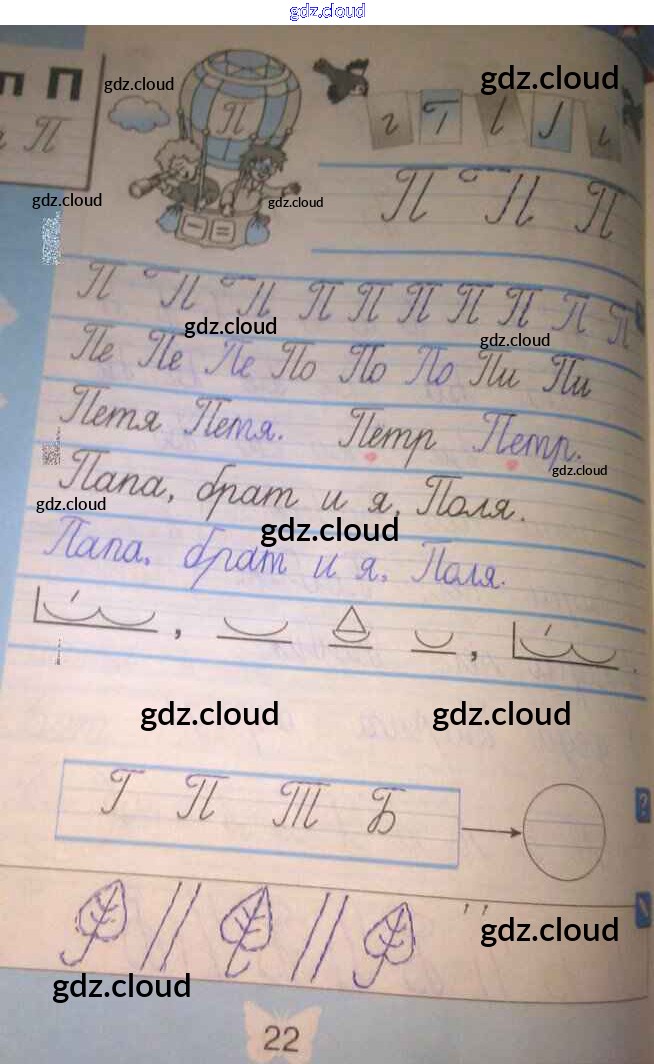 gdz.cloud
п П
gdz.cloud
gdz.cloud
П
г Г
П
gdz.cloud
gdz.cloud
П П П
П П П П П П П П П П
gdz.cloud
gdz.cloud
Пе Пе Пе По По По Пи Пи
Петя Петя. Петр Петр.
gdz.cloud
Папа, брат и я, Поля.
gdz.cloud
gdz.cloud
Папа, брат и я, Поля.
gdz.cloud
gdz.cloud
Г П Т Б
?
gdz.cloud
gdz.cloud
22